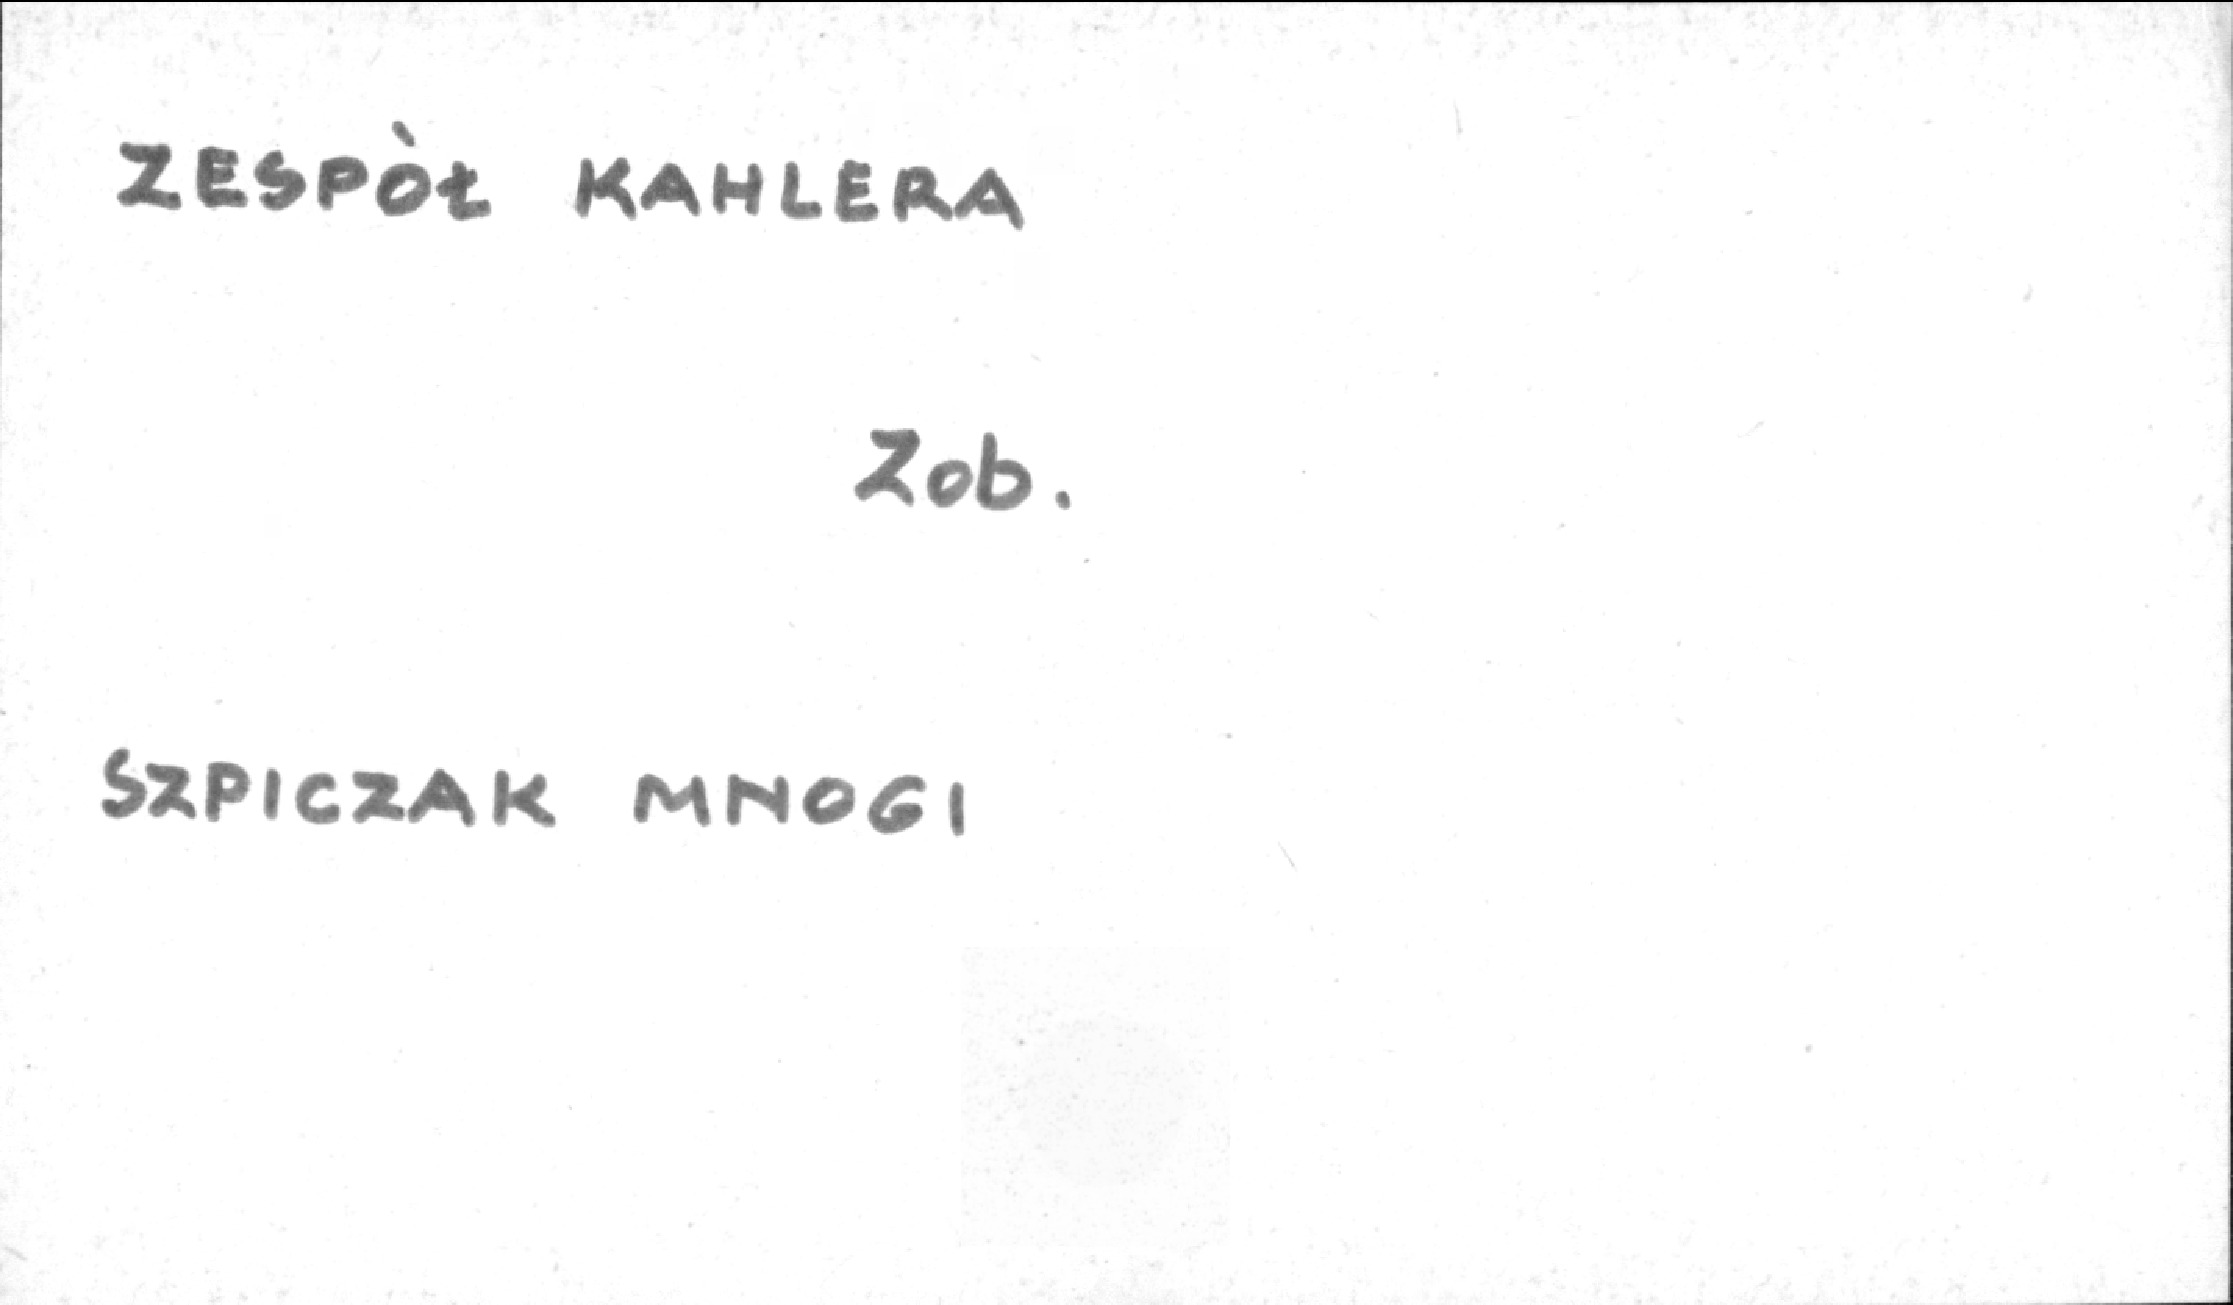 ZESPÒŁ KAHLERA
Zob.
SZPICZAK MNOGI